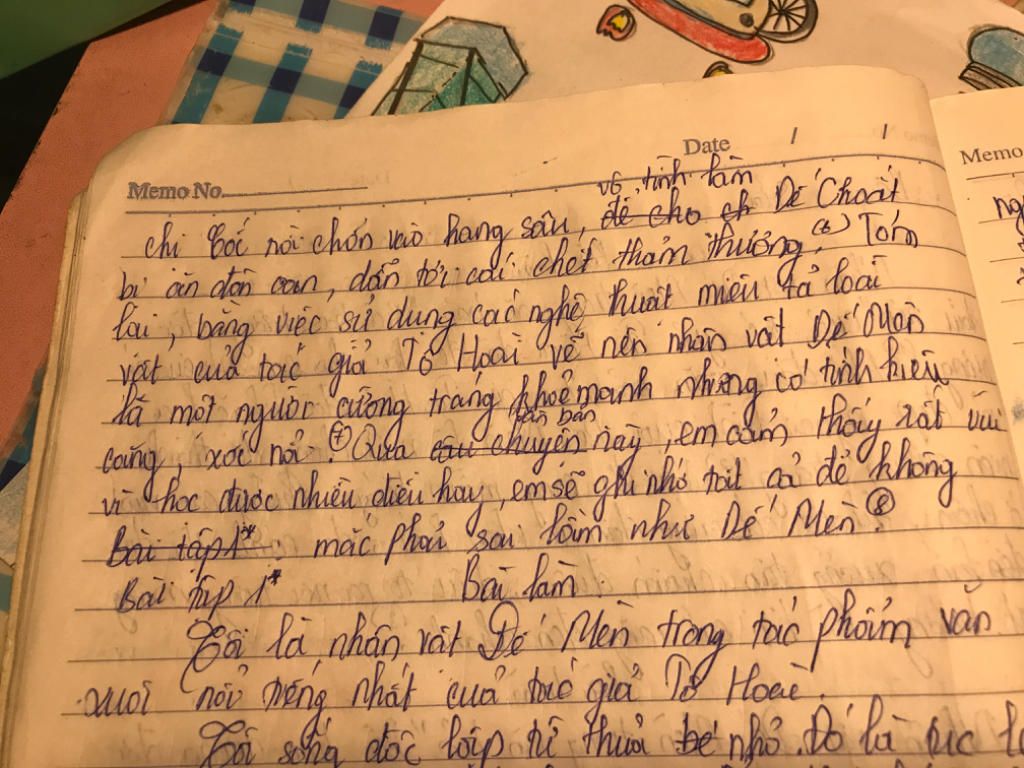 Date / /
Memo No.
Memo
vô tình làm
chị Cốc rồi chốn vào hang sâu, để cho ch Dế Choắt
bị ăn đòn oan, dẫn tới cái chết thảm thương. (6) Tóm
lại, bằng việc sử dụng các nghệ thuật miêu tả loài
vật của tác giả Tô Hoài vẽ nên nhân vật Dế Mèn
là một người cường tráng khoẻ mạnh nhưng có tính kiêu
văn bản
căng, xốc nổi. (7) Qua câu chuyện này, em cảm thấy rất vui
vì học được nhiều điều hay, em sẽ ghi nhớ tất cả để không
Bài tập 1* mắc phải sai lầm như Dế Mèn. (8)
Bài tập 1* Bài làm
Tôi là nhân vật Dế Mèn trong tác phẩm văn
xuôi nổi tiếng nhất của tác giả Tô Hoài.
Tôi sống độc lập từ thuở bé nhỏ. Đó là tục